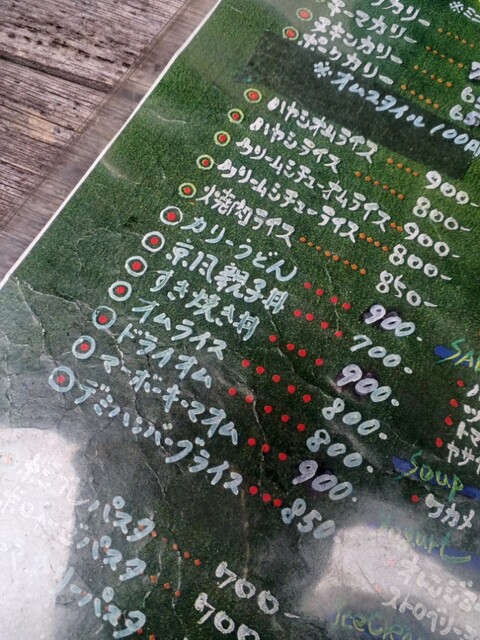 カリー
キーマカリー
チキンカリー
ポークカリー
※オムスタイル 100円
ハヤシオムライス 900-
ハヤシライス 800-
クリームシチューオムライス 900-
クリームシチューライス 800-
焼肉ライス 850-
カリーうどん 900-
京風親子丼 700-
すき焼き丼 900-
オムライス 800-
ドライオム 800-
マーボーキーマオム 900-
デミハンバーグライス 850-
パスタ 700-
パスタ 700
パスタ
Soup
ワカメ
オレンジ
ストロベリー